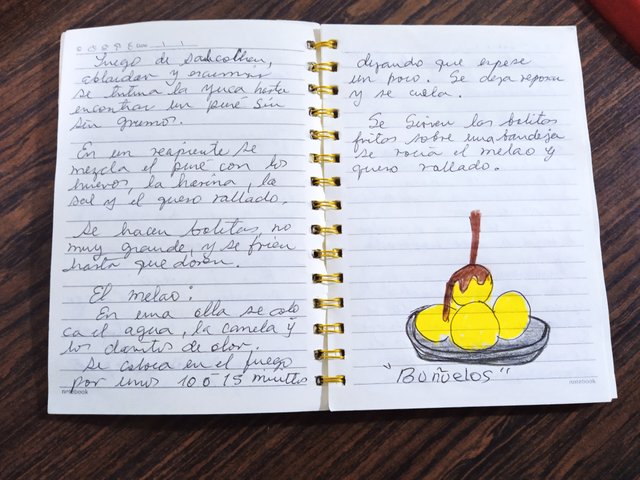 Luego de sancochar,
ablandar y escurrir
se tritura la yuca hasta
encontrar un puré sin
sin grumos.
En un recipiente se
mezcla el puré con los
huevos, la harina, la
sal y el queso rallado.
Se hacen bolitas, no
muy grande, y se frien
hasta que doren.
El melao:
En una olla se colo
ca el agua, la canela y
los clavitos de olor.
Se coloca en el fuego
por unos 10 ó 15 minutos
notebook
dejando que espese
un poco. Se deja reposar
y se cuela.
Se Sirven las bolitas
fritas sobre una bandeja
se rocía el melao y
queso rallado.
"Buñuelos"
notebook